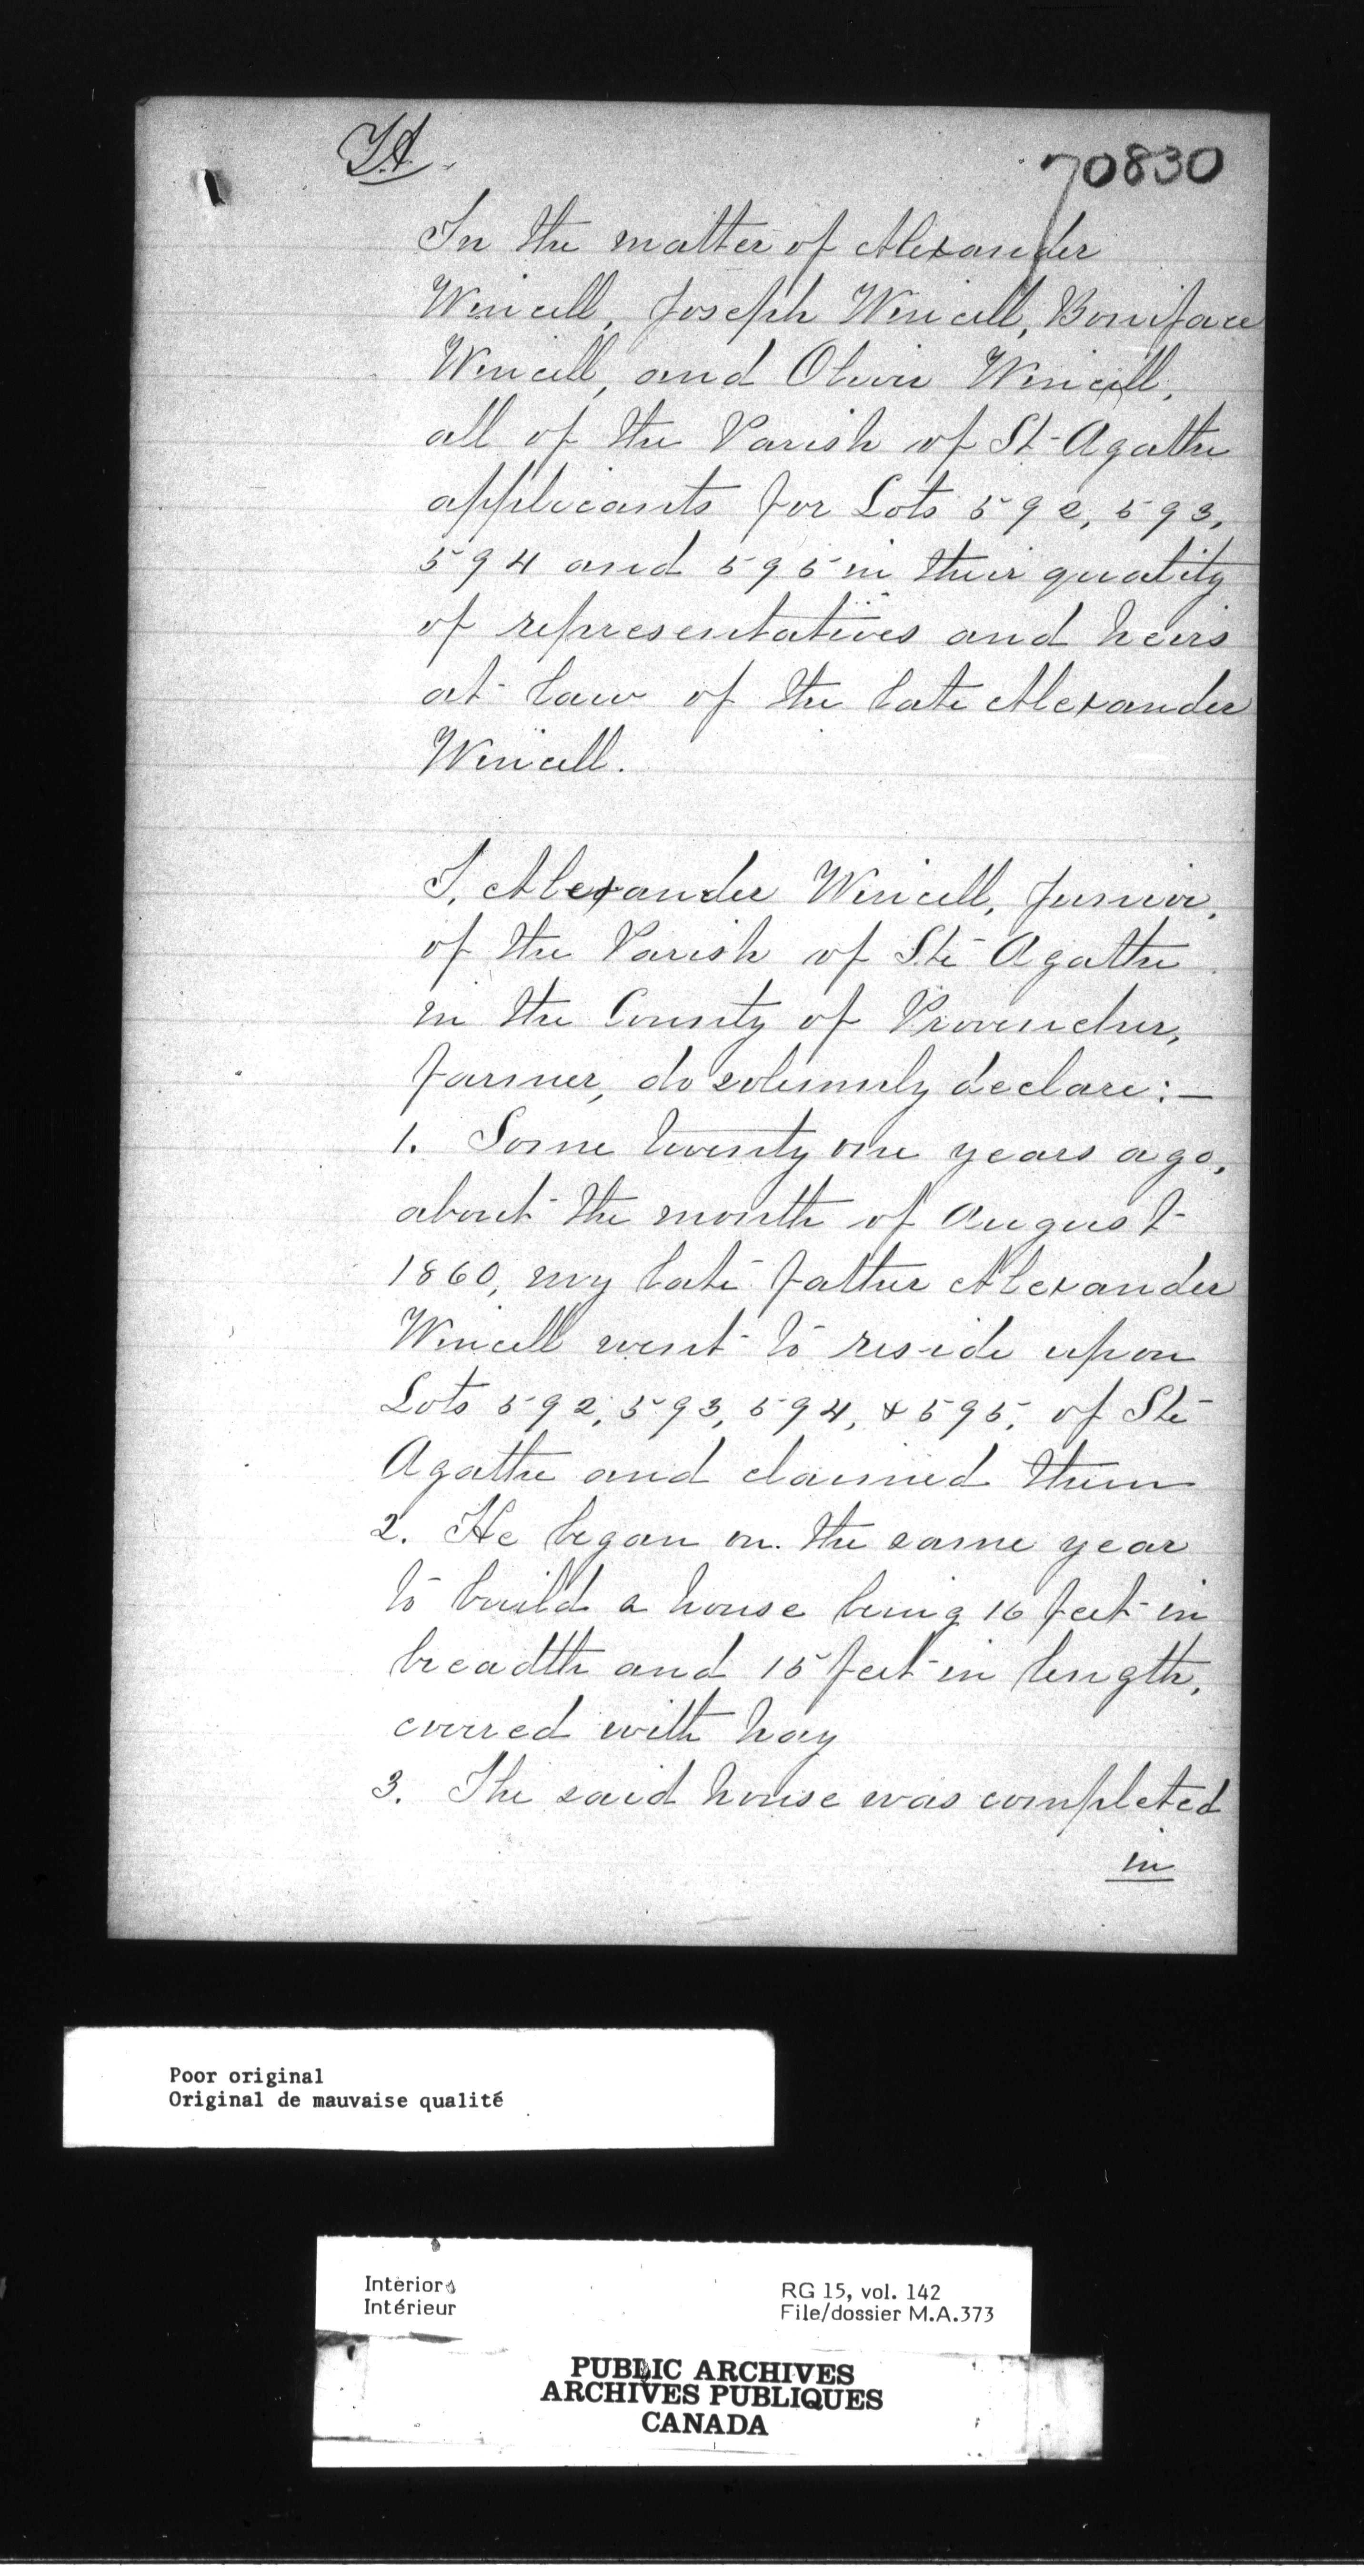 J.A.
70830
In the matter of Alexander
Wincell, Joseph Wincell, Boniface
Wincell, and Olivier Wincell,
all of the Parish of St Agathe
applicants for Lots 592, 593,
594 and 595 in their quality
of representatives and heirs
at law of the late Alexander
Wincell.
I, Alexander Wincell, Junior,
of the Parish of Ste Agathe
in the County of Provencher,
farmer, do solemnly declare:—
1. Some twenty one years ago,
about the month of August
1860, my late father Alexander
Wincell went to reside upon
Lots 592, 593, 594, & 595, of Ste
Agathe and claimed them
2. He began on the same year
to build a house being 16 feet in
breadth and 15 feet in length,
covered with hay
3. The said house was completed
in
Poor original
Original de mauvaise qualité
Interior
Intérieur
RG 15, vol. 142
File/dossier M.A.373
PUBLIC ARCHIVES
ARCHIVES PUBLIQUES
CANADA